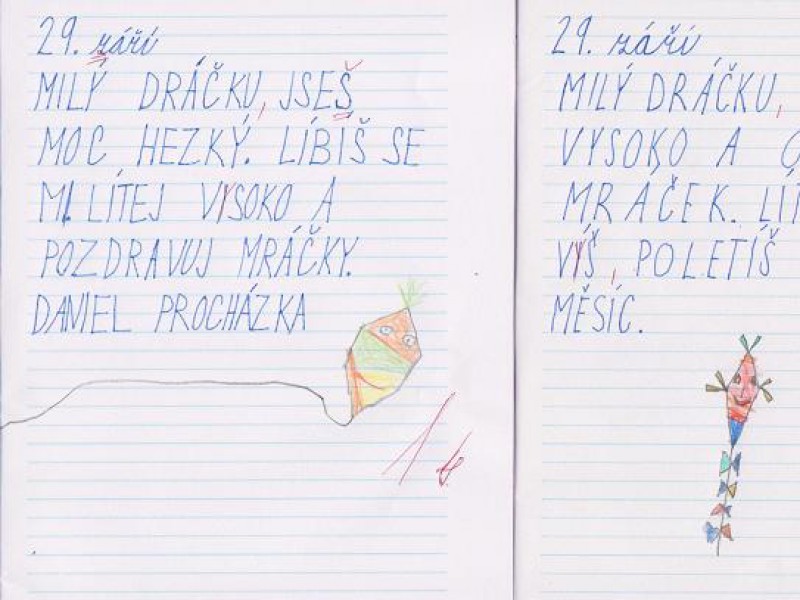 29. září
MILÝ DRÁČKU, JSEŠ
MOC HEZKÝ. LÍBÍŠ SE
MI. LÍTEJ VYSOKO A
POZDRAVUJ MRÁČKY.
DANIEL PROCHÁZKA
1
29. září
MILÝ DRÁČKU,
VYSOKO A
MRÁČEK. LÍT
VÝŠ, POLETÍŠ
MĚSÍC.